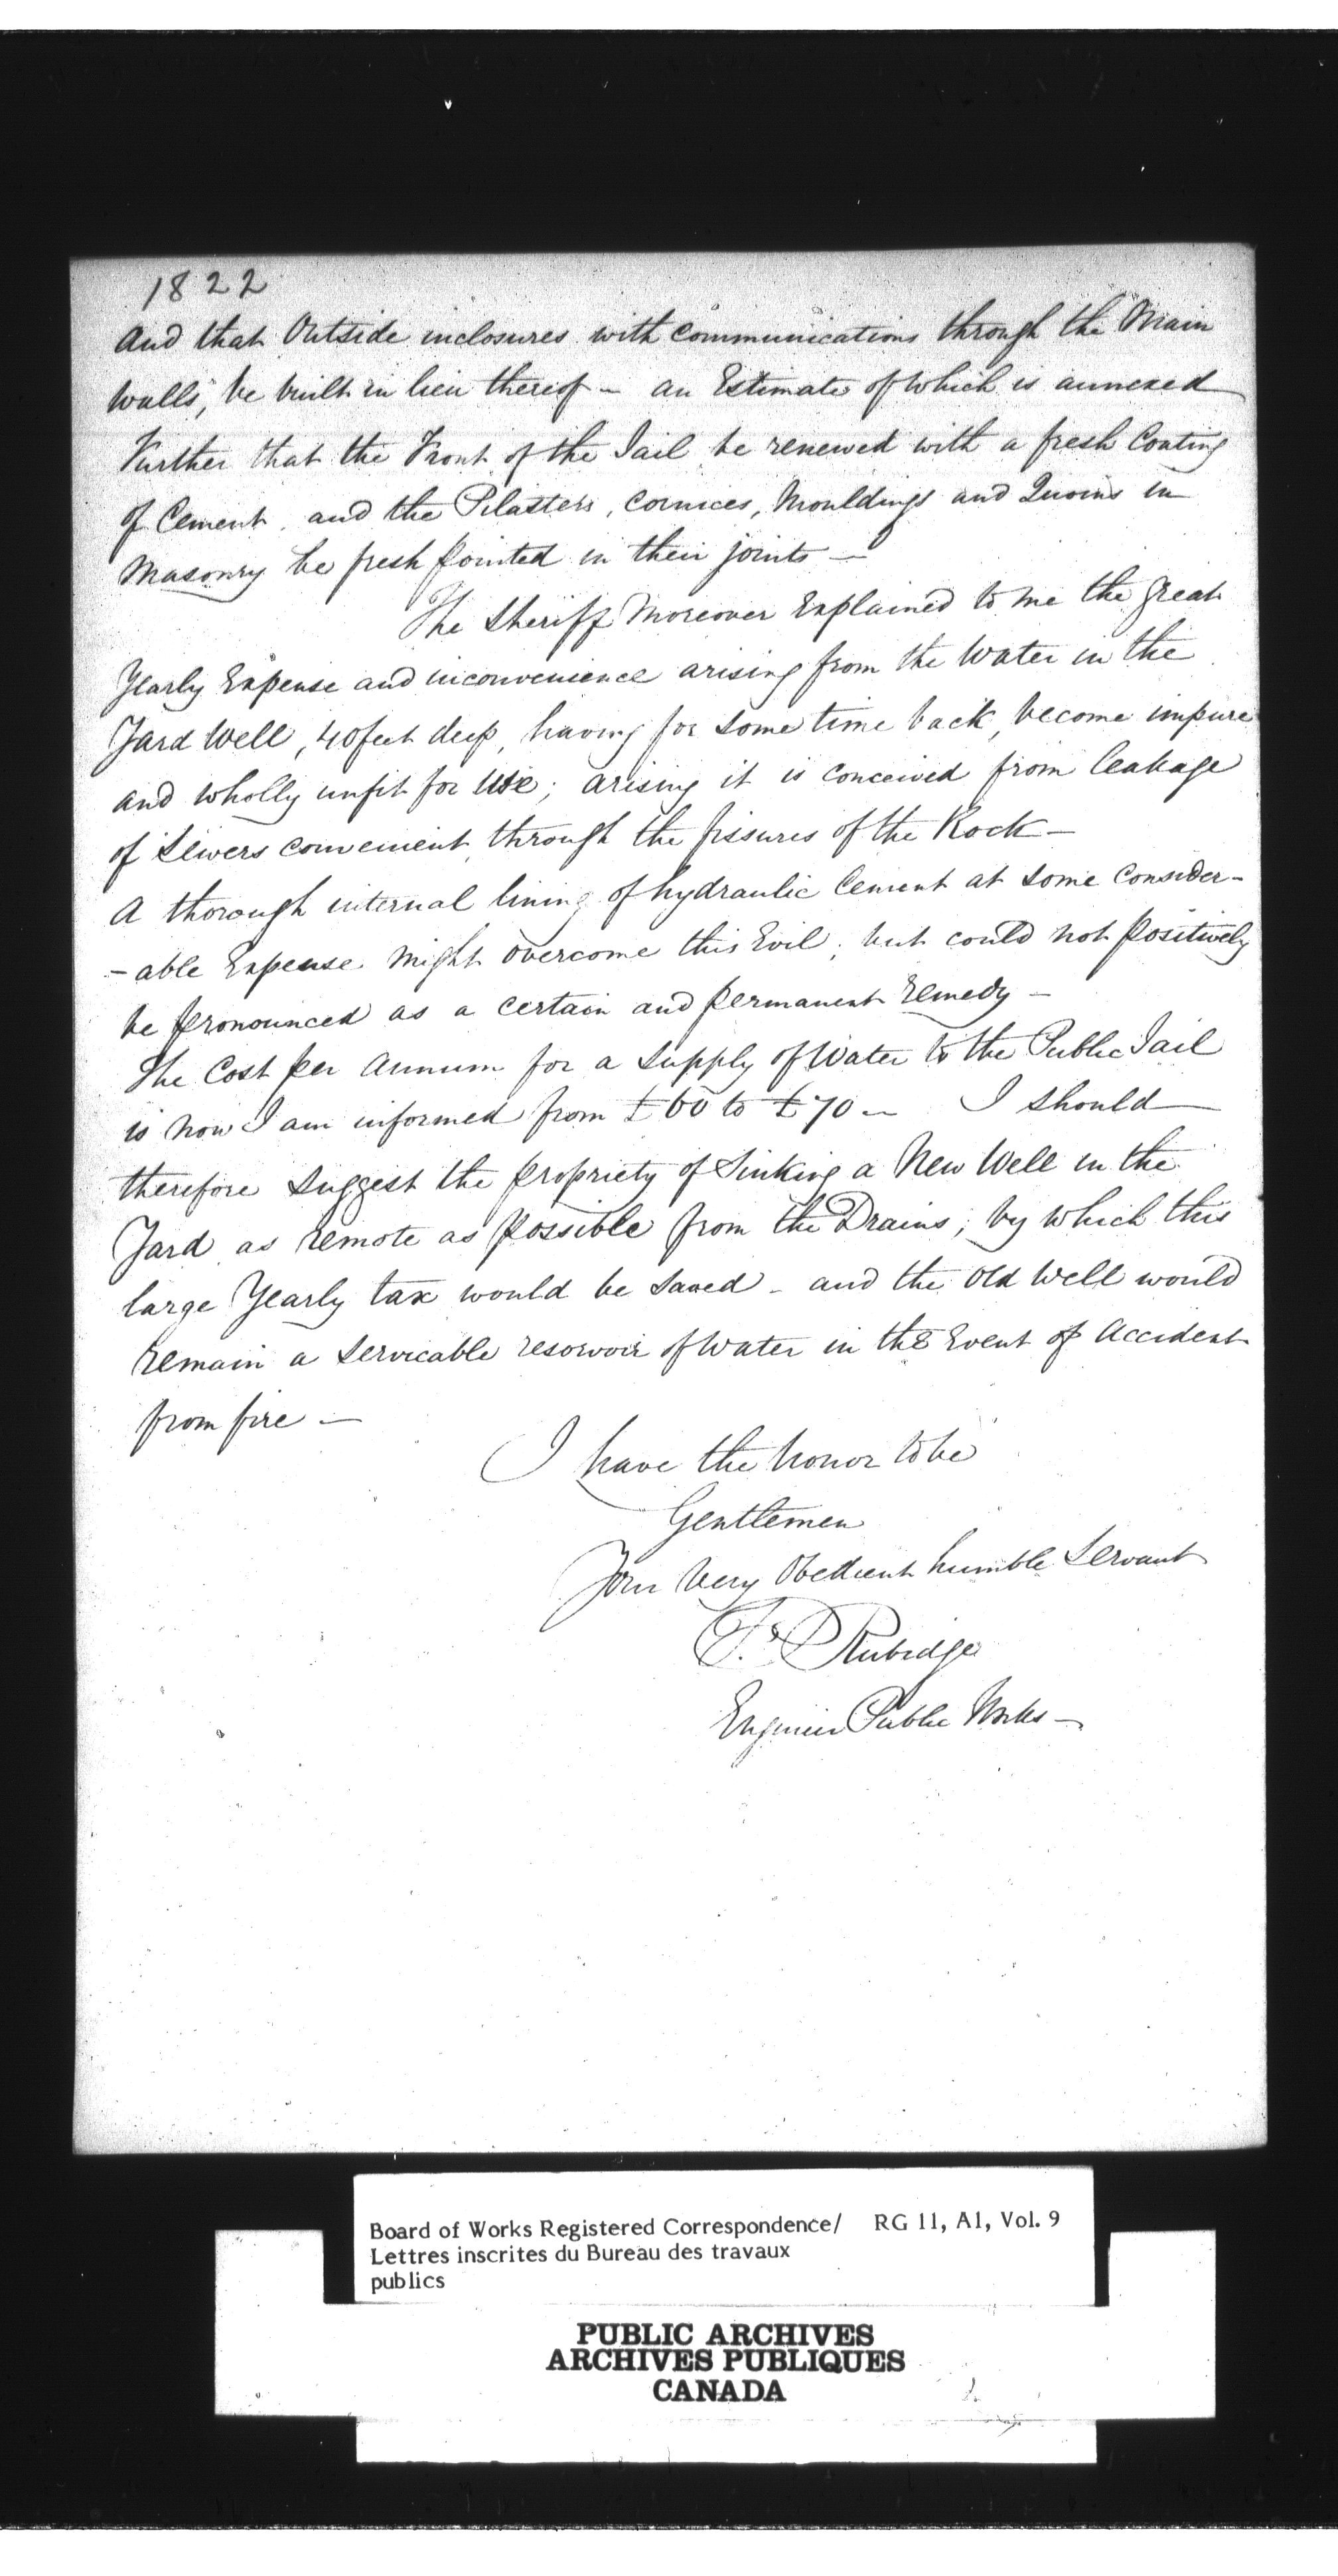 1822
and that Outside inclosures with communications through the Main
walls, be built in lieu thereof – an Estimate of which is annexed
Further that the Front of the Jail be renewed with a fresh Coating
of Cement, and the Pilasters, Cornices, Mouldings and Quoins in
Masonry be fresh pointed in their joints –
The Sheriff Moreover Explained to me the great
Yearly Expense and inconvenience arising from the Water in the
Yard Well, 40 feet deep, having for some time back, become impure
and wholly unfit for Use; arising it is conceived from leakage
of Sewers convenient, through the fissures of the Rock –
A thorough internal lining of hydraulic Cement at some Consider-
-able Expense might overcome this Evil, but could not positively
be pronounced as a certain and permanent remedy –
The Cost per Annum for a supply of Water to the Public Jail
is now I am informed from £60 to £70 – I should
therefore suggest the propriety of Sinking a New Well in the
Yard as remote as possible from the Drains; by which this
large Yearly tax would be saved – and the Old Well would
remain a servicable resorvoir of Water in the Event of Accident
from fire –
I have the honor to be
Gentlemen
Your Very Obedient humble Servant
F. P. Rubidge
Engineer Public Works –
Board of Works Registered Correspondence/ RG 11, A1, Vol. 9
Lettres inscrites du Bureau des travaux
publics
PUBLIC ARCHIVES
ARCHIVES PUBLIQUES
CANADA